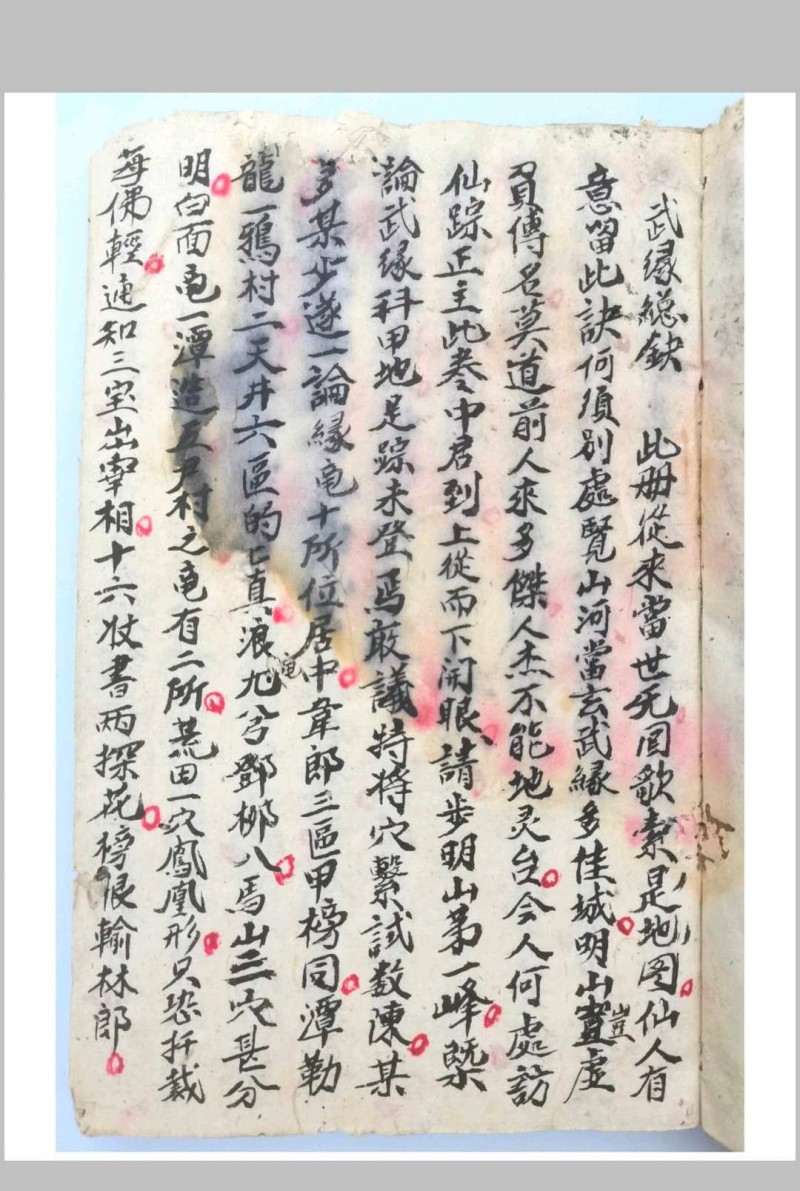 武緣總訣 此册從來當世无回歌索是地图仙人有
意留此訣何須别處覽山河當玄武緣多佳城明山豈虚
負傳名莫道前人來多傑人杰不能地灵台今人何處訪
仙踪正主此卷中君到上從而下開眼請步明山第一峰槩
論武緣科甲地是踪未登焉敢議特將穴繫試数陳某
多某少遂一論緣黾十所位居中韋郎三區甲榜同潭勒
龍一鴉村二天井六區的是真浪尨兮鄧柳八馬山三穴甚分
明白面黾一潭造五尹村之黾有二所荒田一穴鳳凰形只恐扦裁
每佛輕通知三室出宰相十六狀書兩探花榜眼翰林郎